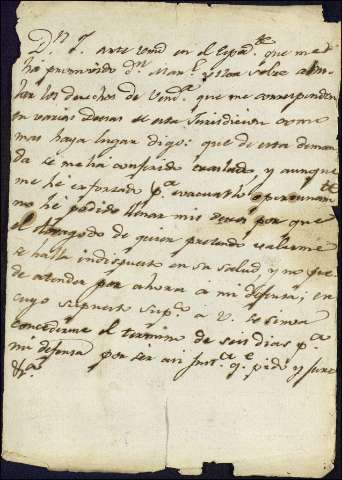 en el Exped.te que me
ha promovido D.n Man.l sobre
los derechos de que me corresponden
en varias de esta Jurisdicion como
mas haya lugar digo: que de esta deman
da se me ha conferido traslado, y aunque
me hé esforzado p.a evacuarlo oportunam.te
no hé podido llenar mis por que
el Abogado de quien pretendo valerme
se halla indispuesto en su salud, y no pue
de atender por ahora á mi defensa; en
cuyo supuesto Sup.co a V. se sirva
concederme el termino de seis dias p.a
mi defensa por ser asi Just.a q.e pido y juro
&.a